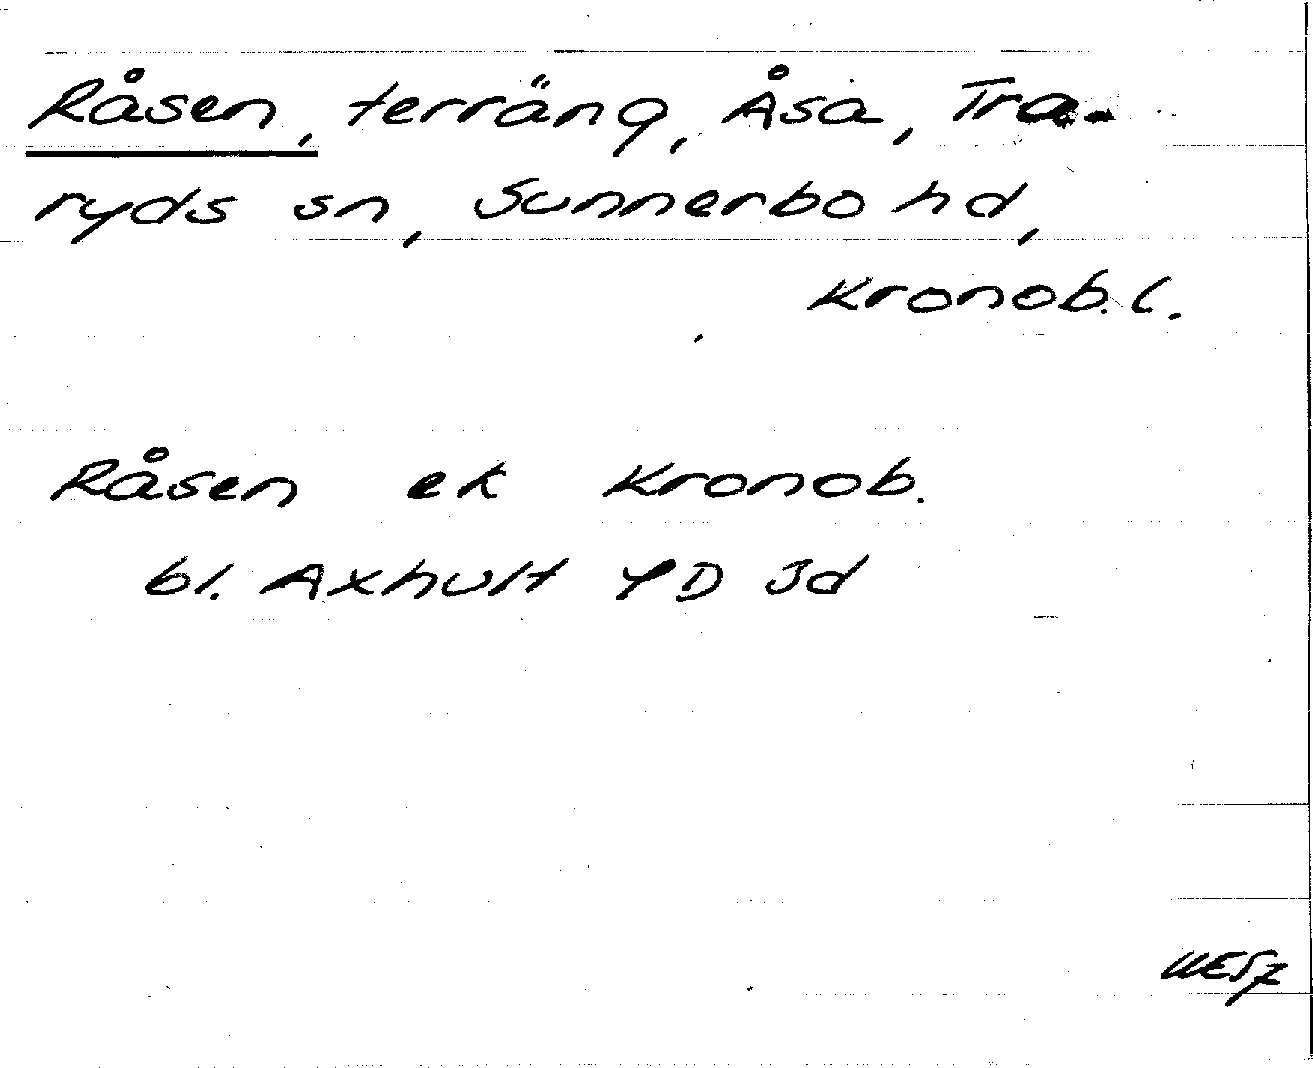 Råsen, terräng, Åsa, Tra-
ryds sn, Sunnerbo hd,
Kronob. l.
Råsen ek Kronob.
bl. Axhult YD 3d